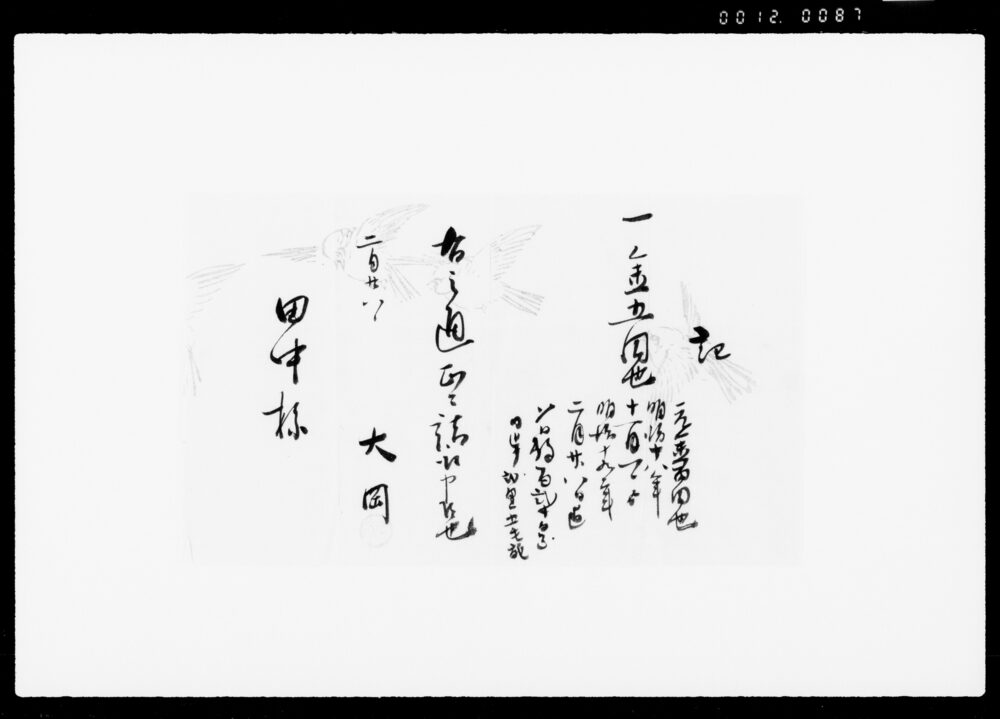 0012. 0087
記
一金五円也
元金百円也
明治十八年
十一月一日ゟ
明治十九年
二月廿八日迄
右之通正ニ請取申候也
二月廿八
大岡
田中様